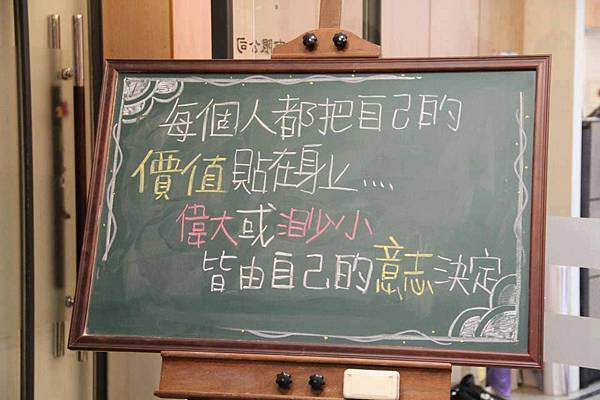 每個人都把自己的
價值貼在身上....
偉大或渺小
皆由自己的意志決定